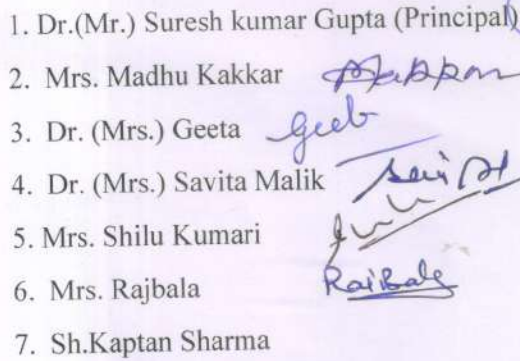 1. Dr.(Mr.) Suresh kumar Gupta (Principal)
2. Mrs. Madhu Kakkar
3. Dr. (Mrs.) Geeta Geeb
4. Dr. (Mrs.) Savita Malik
5. Mrs. Shilu Kumari
6. Mrs. Rajbala Rajbala
7. Sh.Kaptan Sharma